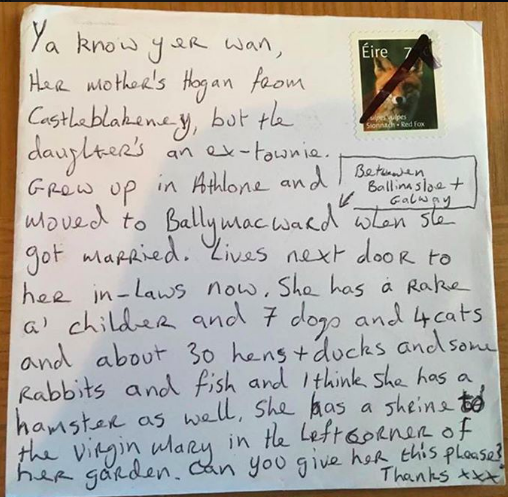 Ya know yer wan,
Her mother's Hogan from
Castleblakeney, but the
daughter's an ex-townie.
Grew up in Athlone and
moved to Ballymacward when she
got married. Lives next door to
her in-laws now. She has a rake
a' childer and 7 dogs and 4 cats
and about 30 hens + ducks and some
rabbits and fish and I think she has a
hamster as well. She has a shrine to
the Virgin Mary in the left corner of
her garden. Can you give her this please?
Thanks xxx
Between
Ballinasloe +
Galway
Éire 7
vulpes vulpes
Sionnach • Red Fox